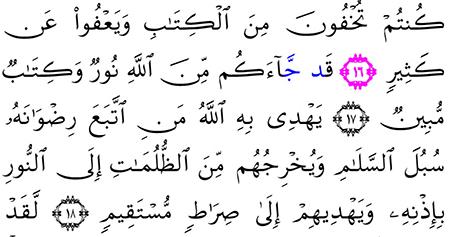 كُنتُمْ تُخْفُونَ مِنَ ٱلْكِتَٰبِ وَيَعْفُوا۟ عَن
كَثِيرٍ ١٦ قَد جَّآءَكُم مِّنَ ٱللَّهِ نُورٌ وَكِتَٰبٌ
مُّبِينٌ ١٧ يَهْدِى بِهِ ٱللَّهُ مَنِ ٱتَّبَعَ رِضْوَٰنَهُۥ
سُبُلَ ٱلسَّلَٰمِ وَيُخْرِجُهُم مِّنَ ٱلظُّلُمَٰتِ إِلَى ٱلنُّورِ
بِإِذْنِهِۦ وَيَهْدِيهِمْ إِلَىٰ صِرَٰطٍ مُّسْتَقِيمٍ ١٨ لَّقَدْ